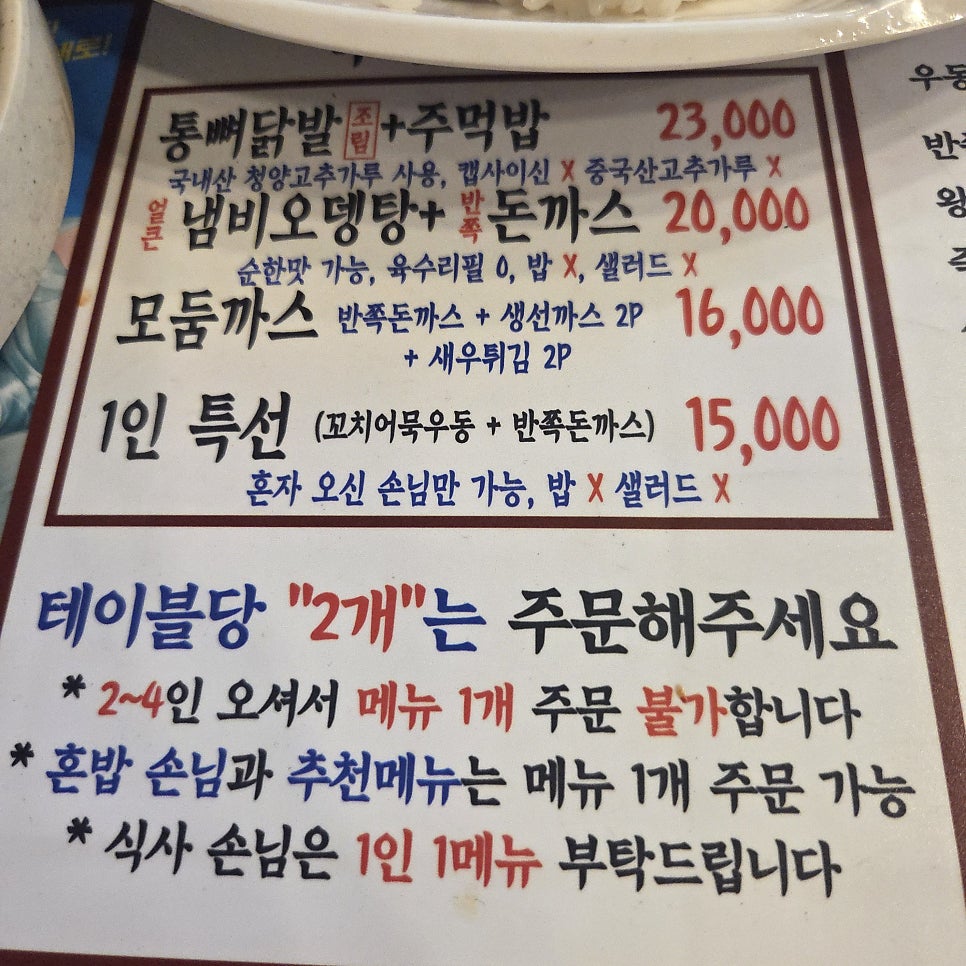 통뼈닭발 조림 +주먹밥 23,000
국내산 청양고추가루 사용, 캡사이신 X 중국산고추가루 X
얼큰 냄비오뎅탕+ 반쪽 돈까스 20,000
순한맛 가능, 육수리필 O, 밥 X, 샐러드 X
모둠까스 반쪽돈까스 + 생선까스 2P 16,000
+ 새우튀김 2P
1인 특선 (꼬치어묵우동 + 반쪽돈까스) 15,000
혼자 오신 손님만 가능, 밥 X 샐러드 X
테이블당 "2개"는 주문해주세요
* 2~4인 오셔서 메뉴 1개 주문 불가합니다
* 혼밥 손님과 추천메뉴는 메뉴 1개 주문 가능
* 식사 손님은 1인 1메뉴 부탁드립니다
반쪽
왕